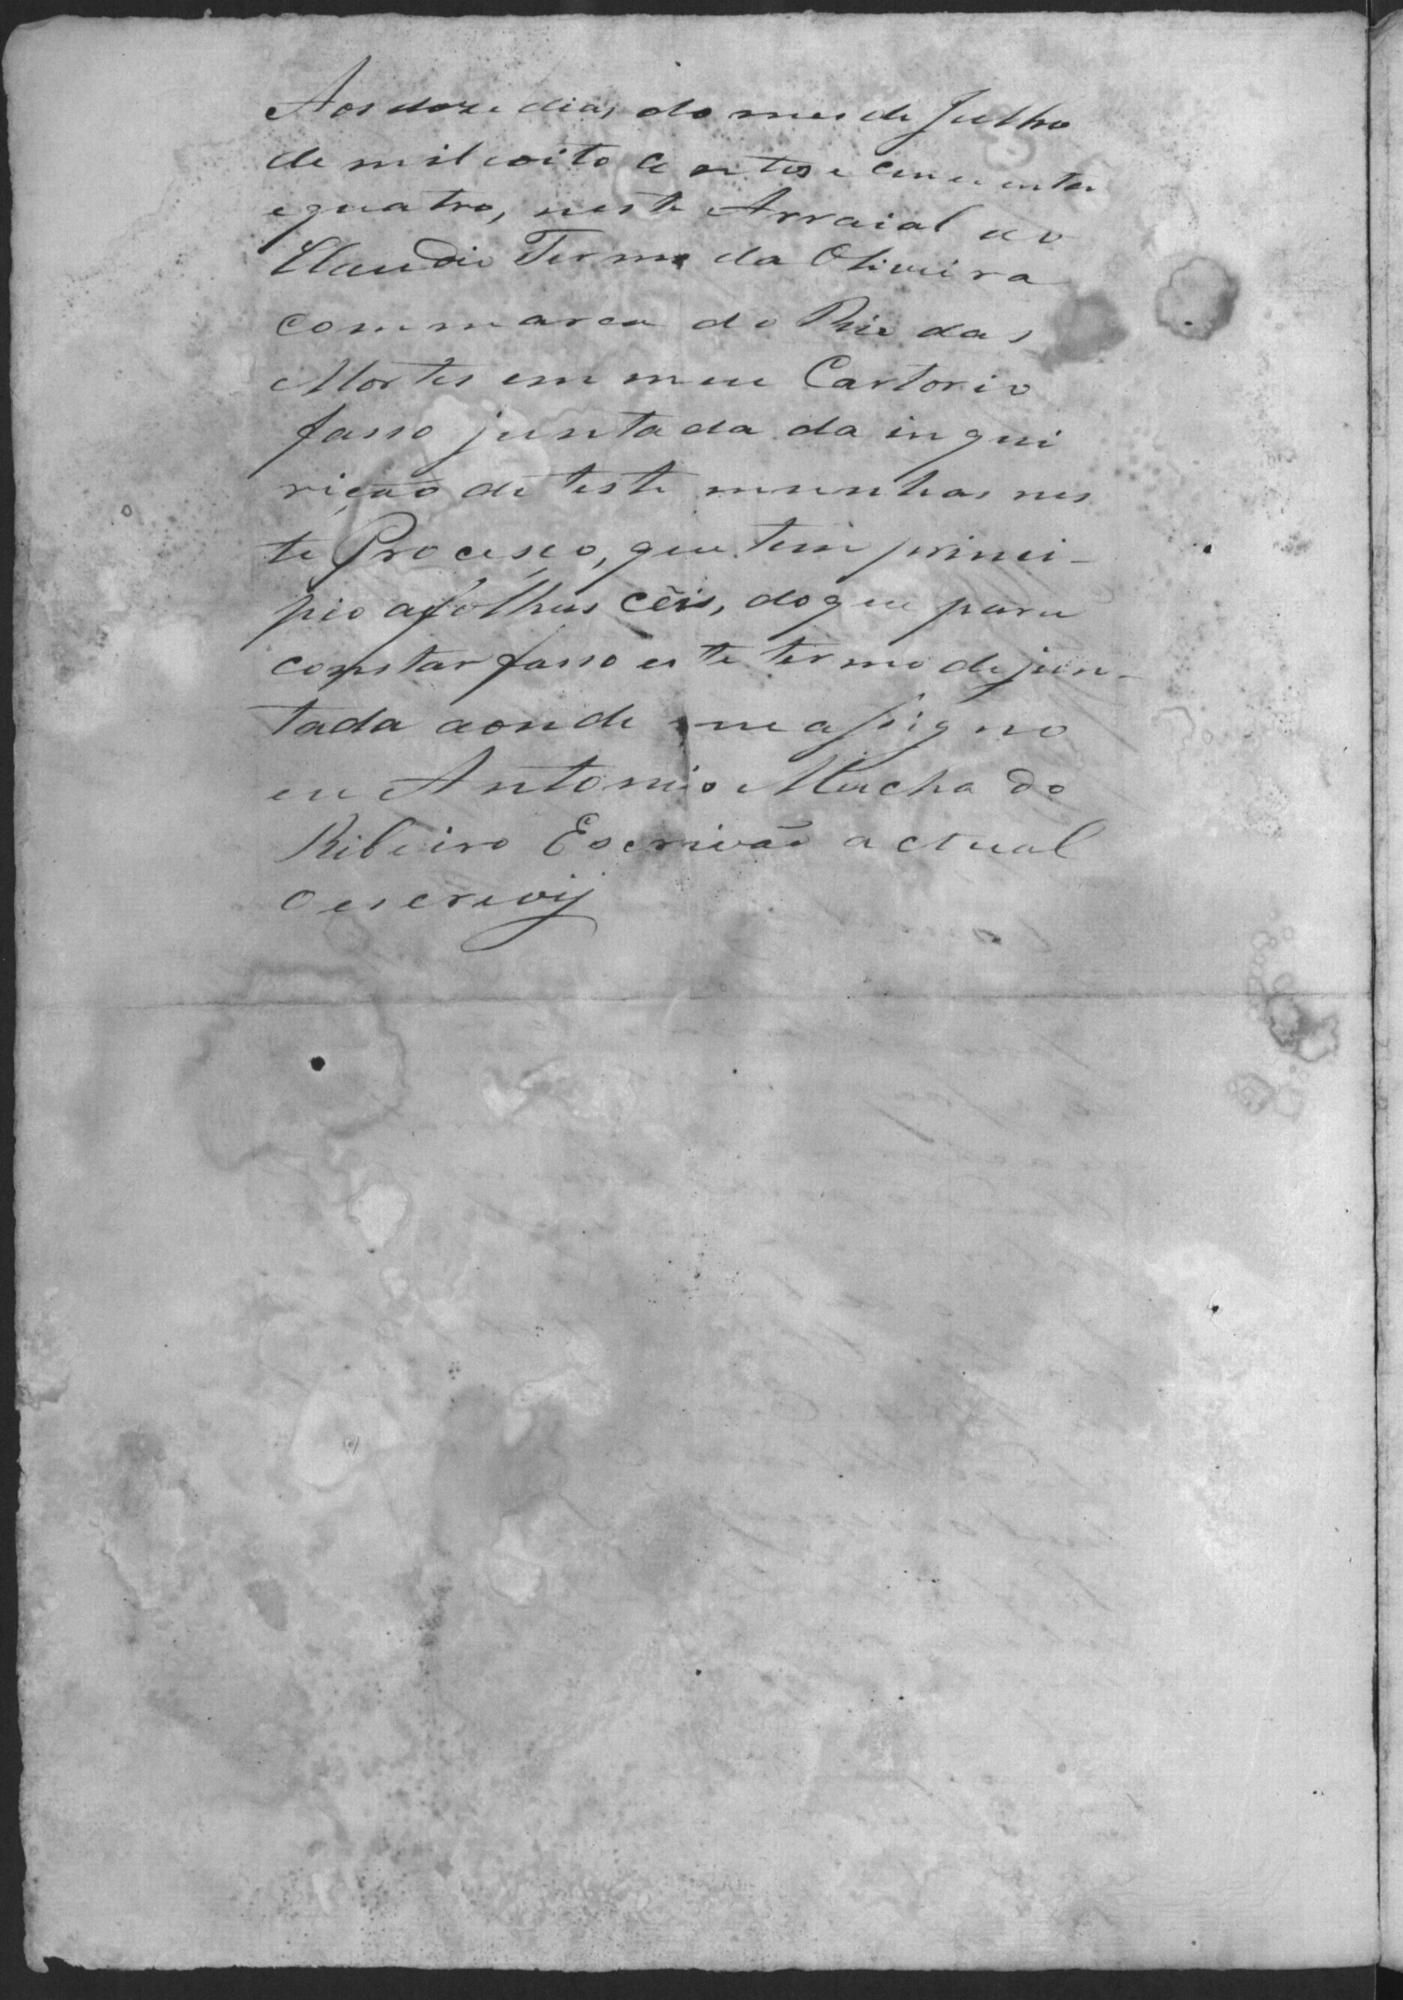 Aos doze dias do mes de Julho
de mil eoito centos e cincoenta
equatro, neste Arraial do
Claudio Termo da Oliveira
commarca do Rio das
Mortes em meu Cartorio
fasso juntada da inqui
rição de teste munhas nes
te Processo, que tem princi-
pio afolhas cêis, doque para
constar fasso este termo de jun-
tada aonde me assigno
eu Antonio Machado
Ribeiro Escrivão actual
oescrevij